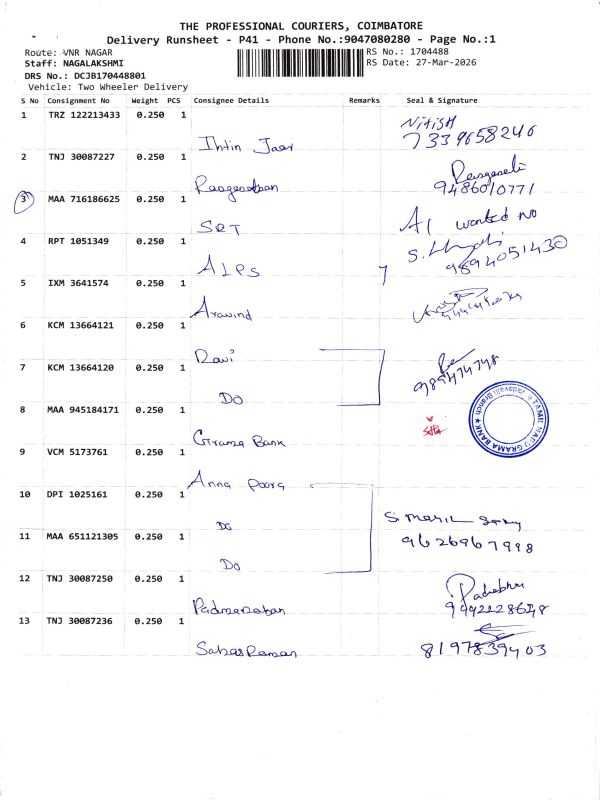 THE PROFESSIONAL COURIERS, COIMBATORE
Delivery Runsheet - P41 - Phone No.:9047080280 - Page No.:1
Route: VNR NAGAR
RS No.: 1704488
Staff: NAGALAKSHMI
RS Date: 27-Mar-2026
DRS No.: DCJB170448801
Vehicle: Two Wheeler Delivery
S No Consignment No Weight PCS Consignee Details Remarks Seal & Signature
1 TRZ 122213433 0.250 1
Nitish
7339658246
Ihtin Jaar
2 TNJ 30087227 0.250 1
9486010771
3 MAA 716186625 0.250 1
SRT
A1 wanted no
4 RPT 1051349 0.250 1
ALPS
9894051430
5 IXM 3641574 0.250 1
Aravind
6 KCM 13664121 0.250 1
Ravi
7 KCM 13664120 0.250 1
DO
8 MAA 945184171 0.250 1
TAMIL NADU GRAMA BANK
Grama Bank
9 VCM 5173761 0.250 1
Anna Poorg
10 DPI 1025161 0.250 1
DO
11 MAA 651121305 0.250 1
9626967998
DO
12 TNJ 30087250 0.250 1
Padmanaban
13 TNJ 30087236 0.250 1
8197839403
SabasRaman